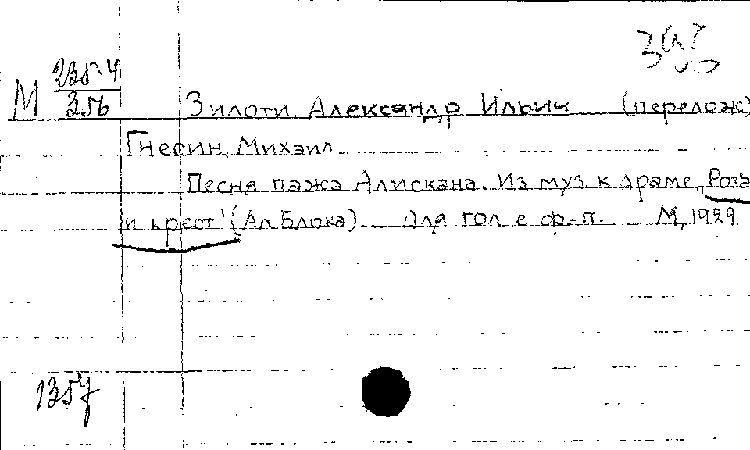 М 235-4
356
Зилоти, Александр Ильич (перелож)
Гнесин, Михаил.
Песня пажа Алискана. Из муз к драме „Роза
и крест" (Ал Блока). Для гол с ф-п. М, 1929